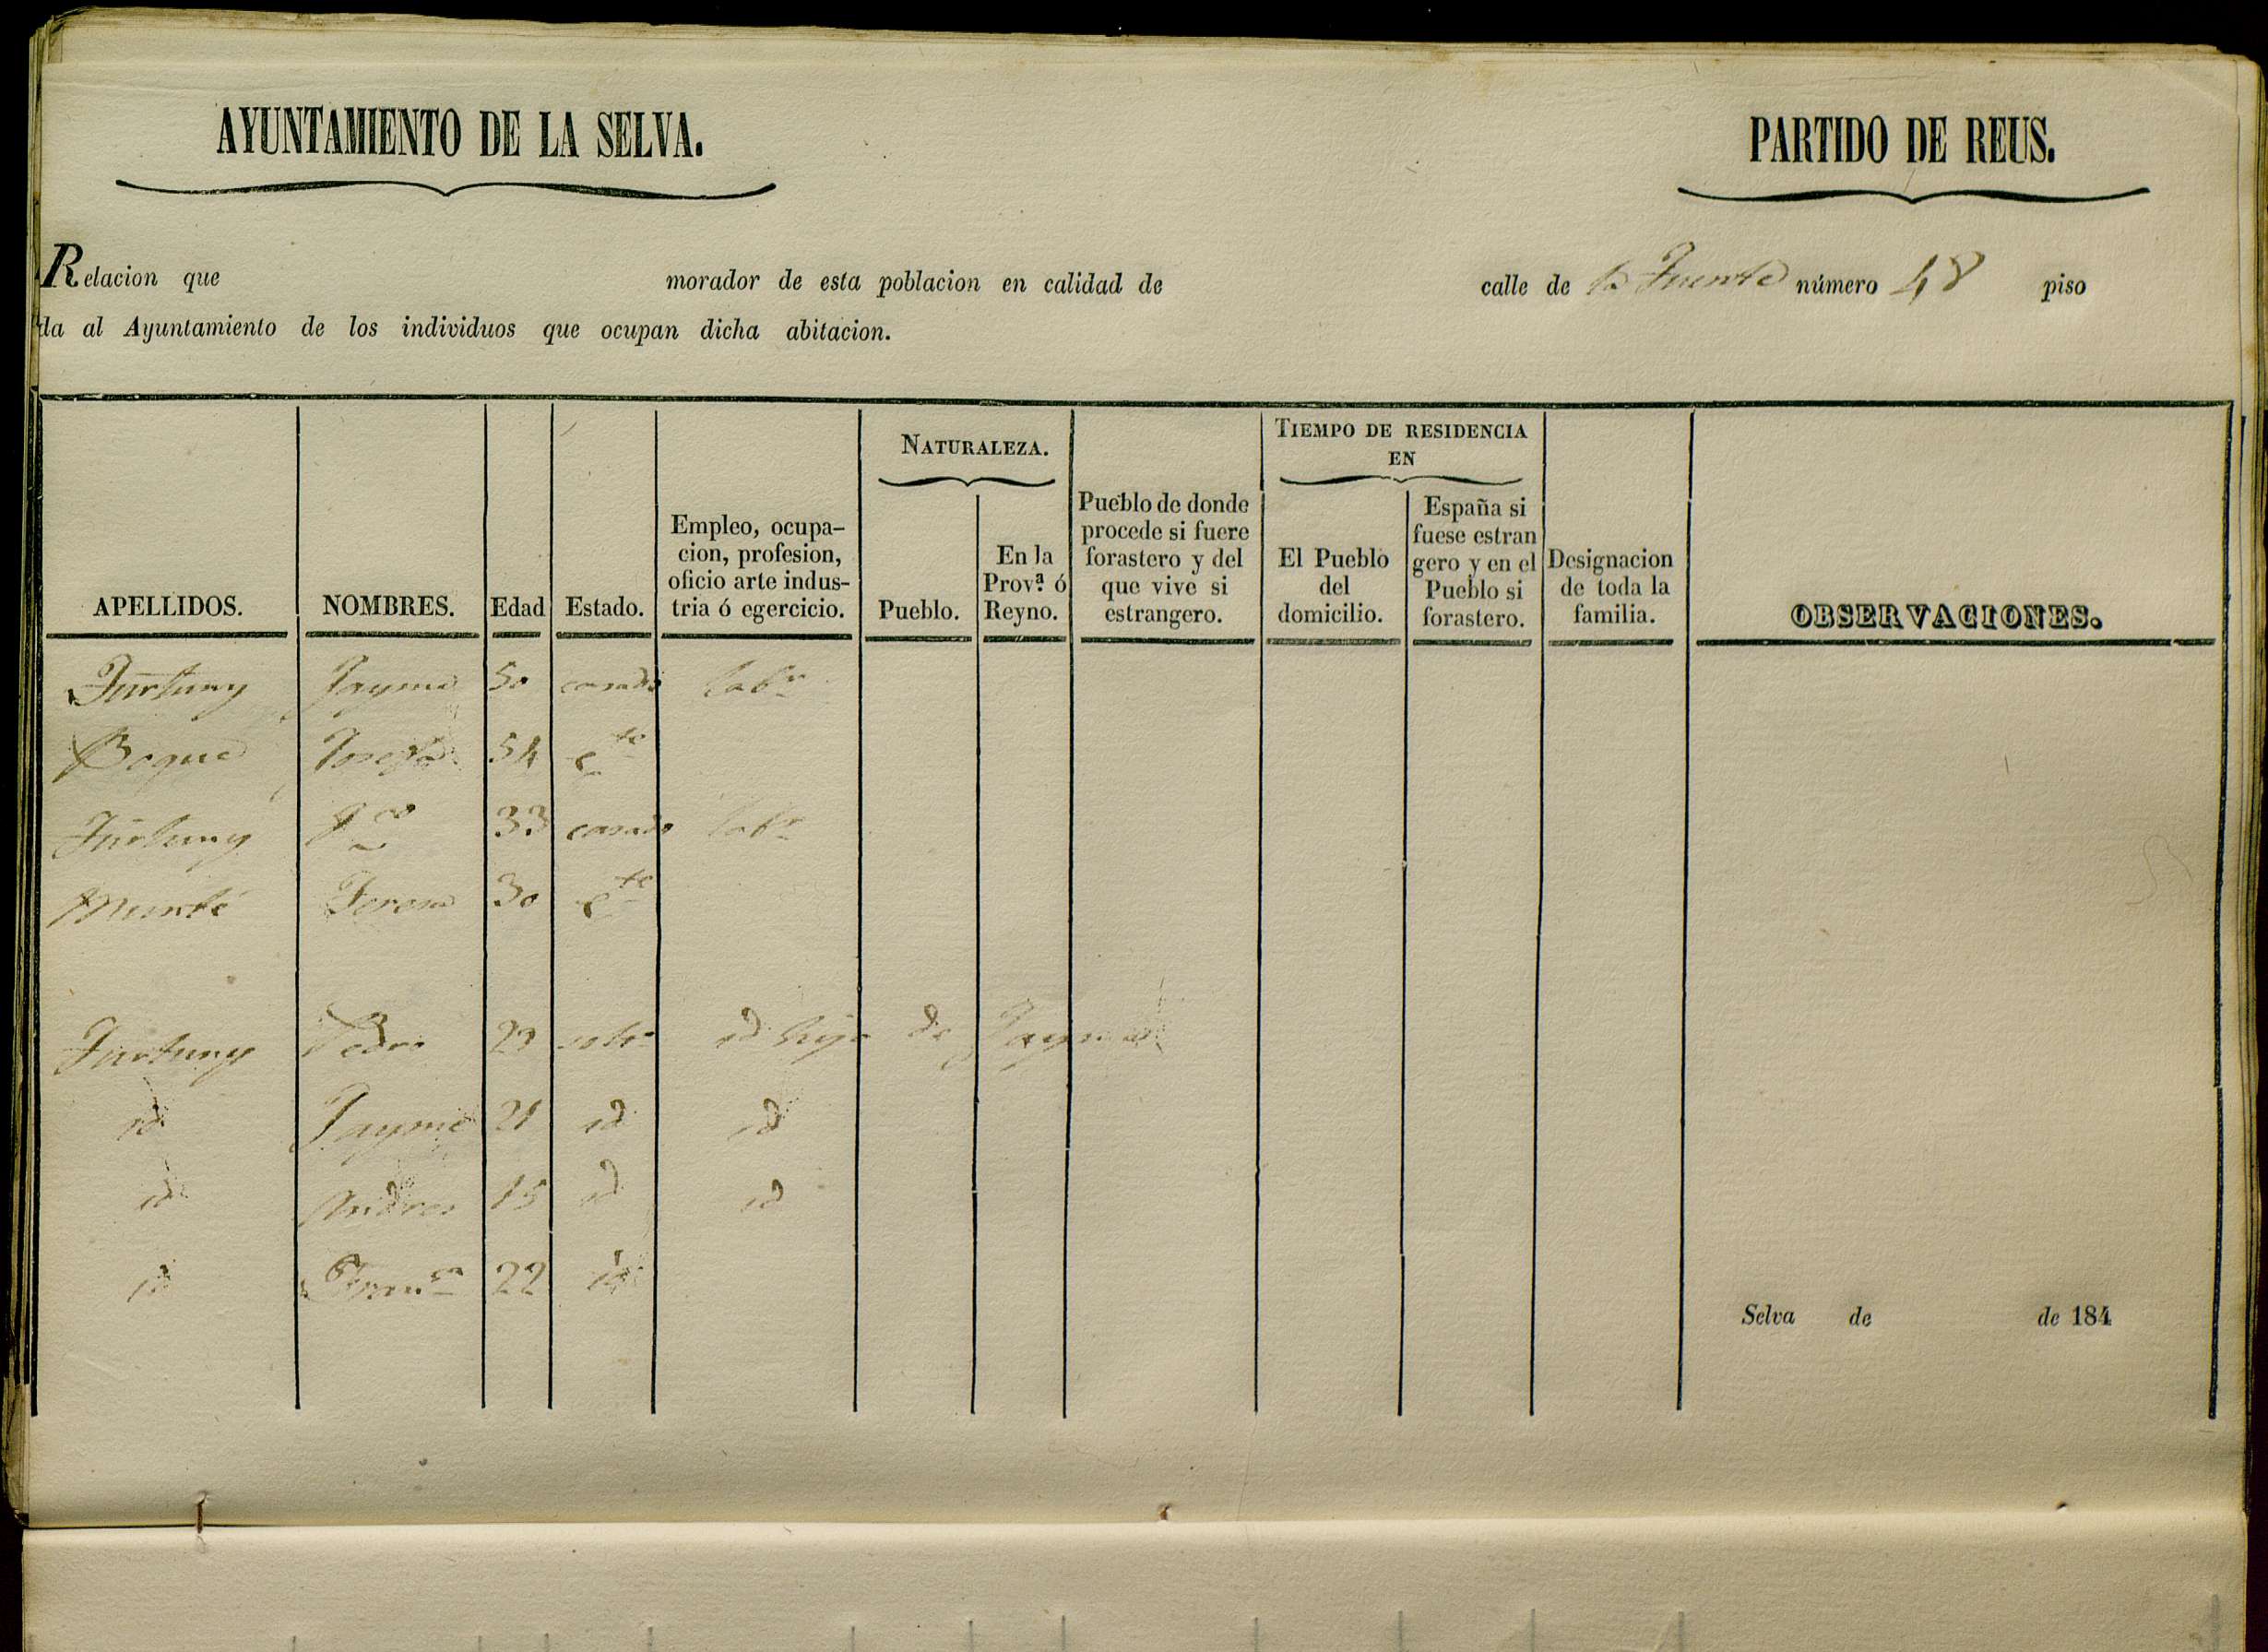 AYUNTAMIENTO DE LA SELVA.
PARTIDO DE REUS.
Relacion que morador de esta poblacion en calidad de calle de la Fuente número 48 piso
da al Ayuntamiento de los individuos que ocupan dicha abitacion.
APELLIDOS.
NOMBRES.
Edad
Estado.
Empleo, ocupa-
cion, profesion,
oficio arte indus-
tria ó egercicio.
NATURALEZA.
Pueblo.
En la
Prov.ª ó
Reyno.
Pueblo de donde
procede si fuere
forastero y del
que vive si
estrangero.
TIEMPO DE RESIDENCIA
EN
El Pueblo
del
domicilio.
España si
fuese estran
gero y en el
Pueblo si
forastero.
Designacion
de toda la
familia.
OBSERVACIONES.
Furtuny Jayme 50 casado labr
Boque Josefa 54 
Furtuny 33 casado labr
Munté Teresa 30
Furtuny Pedro 23 solto id hijo de Jayme
id Jayme 21 id id
id Andres 15 id id
id Franca 22 id
Selva de de 184